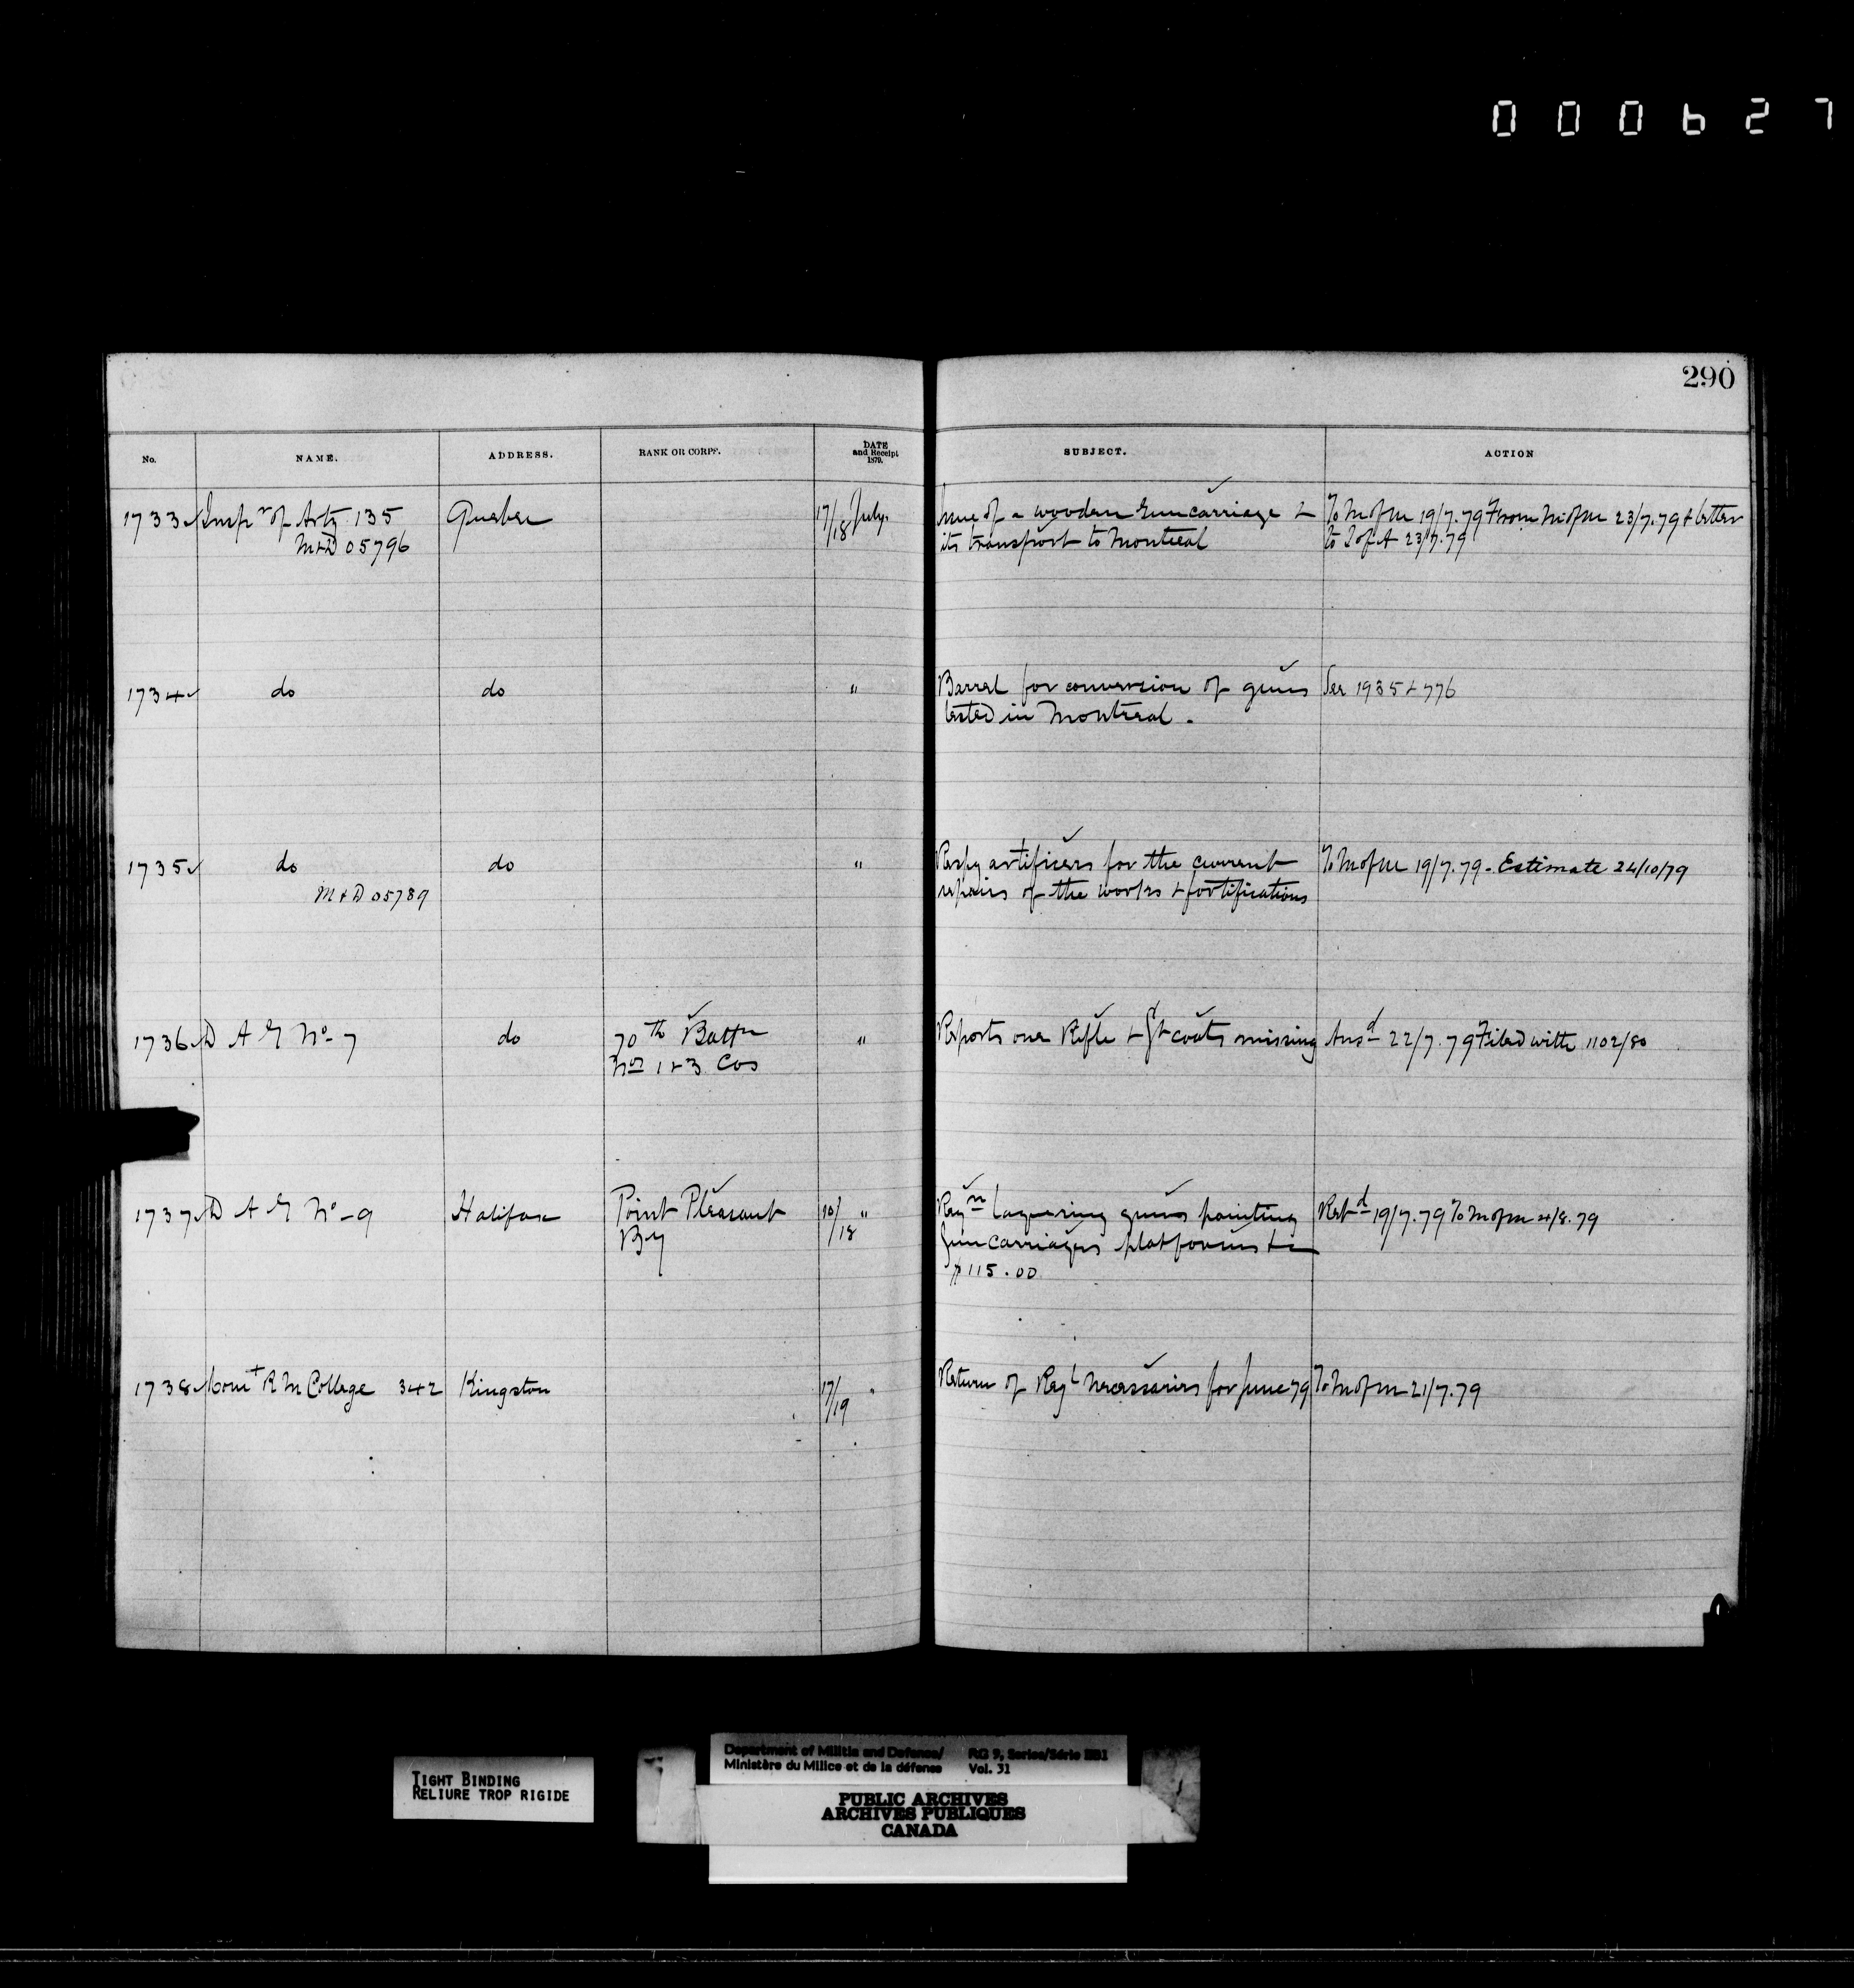 000627
290
No. NAME. ADDRESS. RANK OR CORPS. DATE and Receipt 1879. SUBJECT. ACTION
1733 Inspr of Arty 135 Quebec 17/18 July. Issue of a wooden Guncarriage & To M of M 19/7.79 From M of M 23/7.79 & letter
M&D 05796 its transport to Montreal to I of A 23/7.79
1734 do do " Barrel for conversion of guns See 1935 & 776
tested in Montreal.
1735 do do " artificers for the current To M of M 19/7.79 - Estimate 24/10/79
M&D 05789 repairs of the works & fortifications
1736 D A G No 7 do 70th Battn " Reports one Rifle & Gt coats missing Ansd 22/7.79 Filed with 1102/80
Nos 1 & 3 Cos
1737 D A G No - 9 Halifax Point Pleasant 10/18 " Reqn laquering guns painting Retd 19/7.79 To M of M 4/8.79
By Gun Carriages platforms &c
$115.00
1738 Comt R M College 342 Kingston 17/19 " Return of Regl Necessaries for June 79 To M of M 21/7.79
TIGHT BINDING
RELIURE TROP RIGIDE
Department of Militia and Defence/ RG 9, Series/Série IIB1
Ministère du Milice et de la défense Vol. 31
PUBLIC ARCHIVES
ARCHIVES PUBLIQUES
CANADA